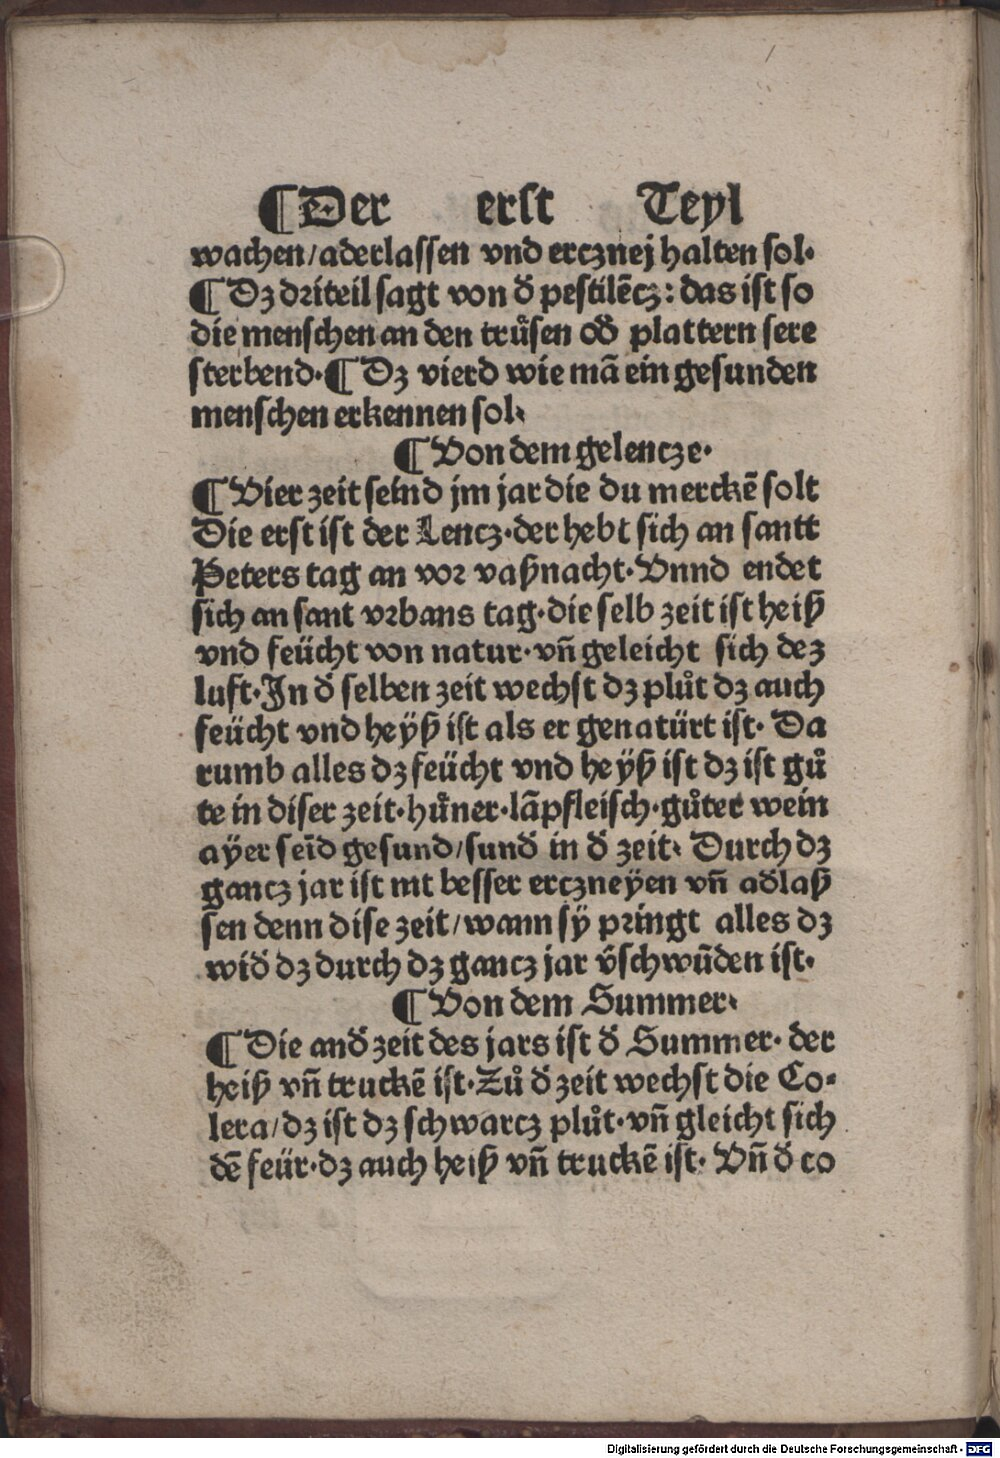 ¶Der erst Teyl
wachen/aderlassen vnd ercznej halten sol·
¶Dz driteil sagt von đ pestilēcz: das ist so
die menschen an den trůsen ođ plattern sere
sterbend·¶Dz vierd wie mā ein gesunden
menschen erkennen sol·
¶Von dem gelencze·
¶Vier zeit seind jm jar die du merckē solt
Die erst ist der Lencz·der hebt sich an santt
Peters tag an vor vaßnacht·Vnnd endet
sich an sant vrbans tag·die selb zeit ist heiß
vnd feücht von natur·vñ geleicht sich dez
luft·In đ selben zeit wechst dz plůt dz auch
feücht vnd heÿß ist als er genatürt ist· Da
rumb alles dz feücht vnd heÿß ist dz ist gů
te in diser zeit·hůner·lāpfleisch·gůter wein
aÿer seīd gesund/sunđ in đ zeit· Durch dz
gancz jar ist nit besser erczneÿen vñ ađlaß
sen denn dise zeit/wann sÿ pringt alles dz
wiđ dz durch dz gancz jar v̄schwūden ist·
¶Von dem Summer·
¶Die anđ zeit des jars ist đ Summer· der
heiß vñ truckē ist·Zů đ zeit wechst die Co-
lera/dz ist dz schwarcz plůt·vñ gleicht sich
dē feür·dz auch heiß vñ truckē ist· Vñ đ co
Digitalisierung gefördert durch die Deutsche Forschungsgemeinschaft - DFG